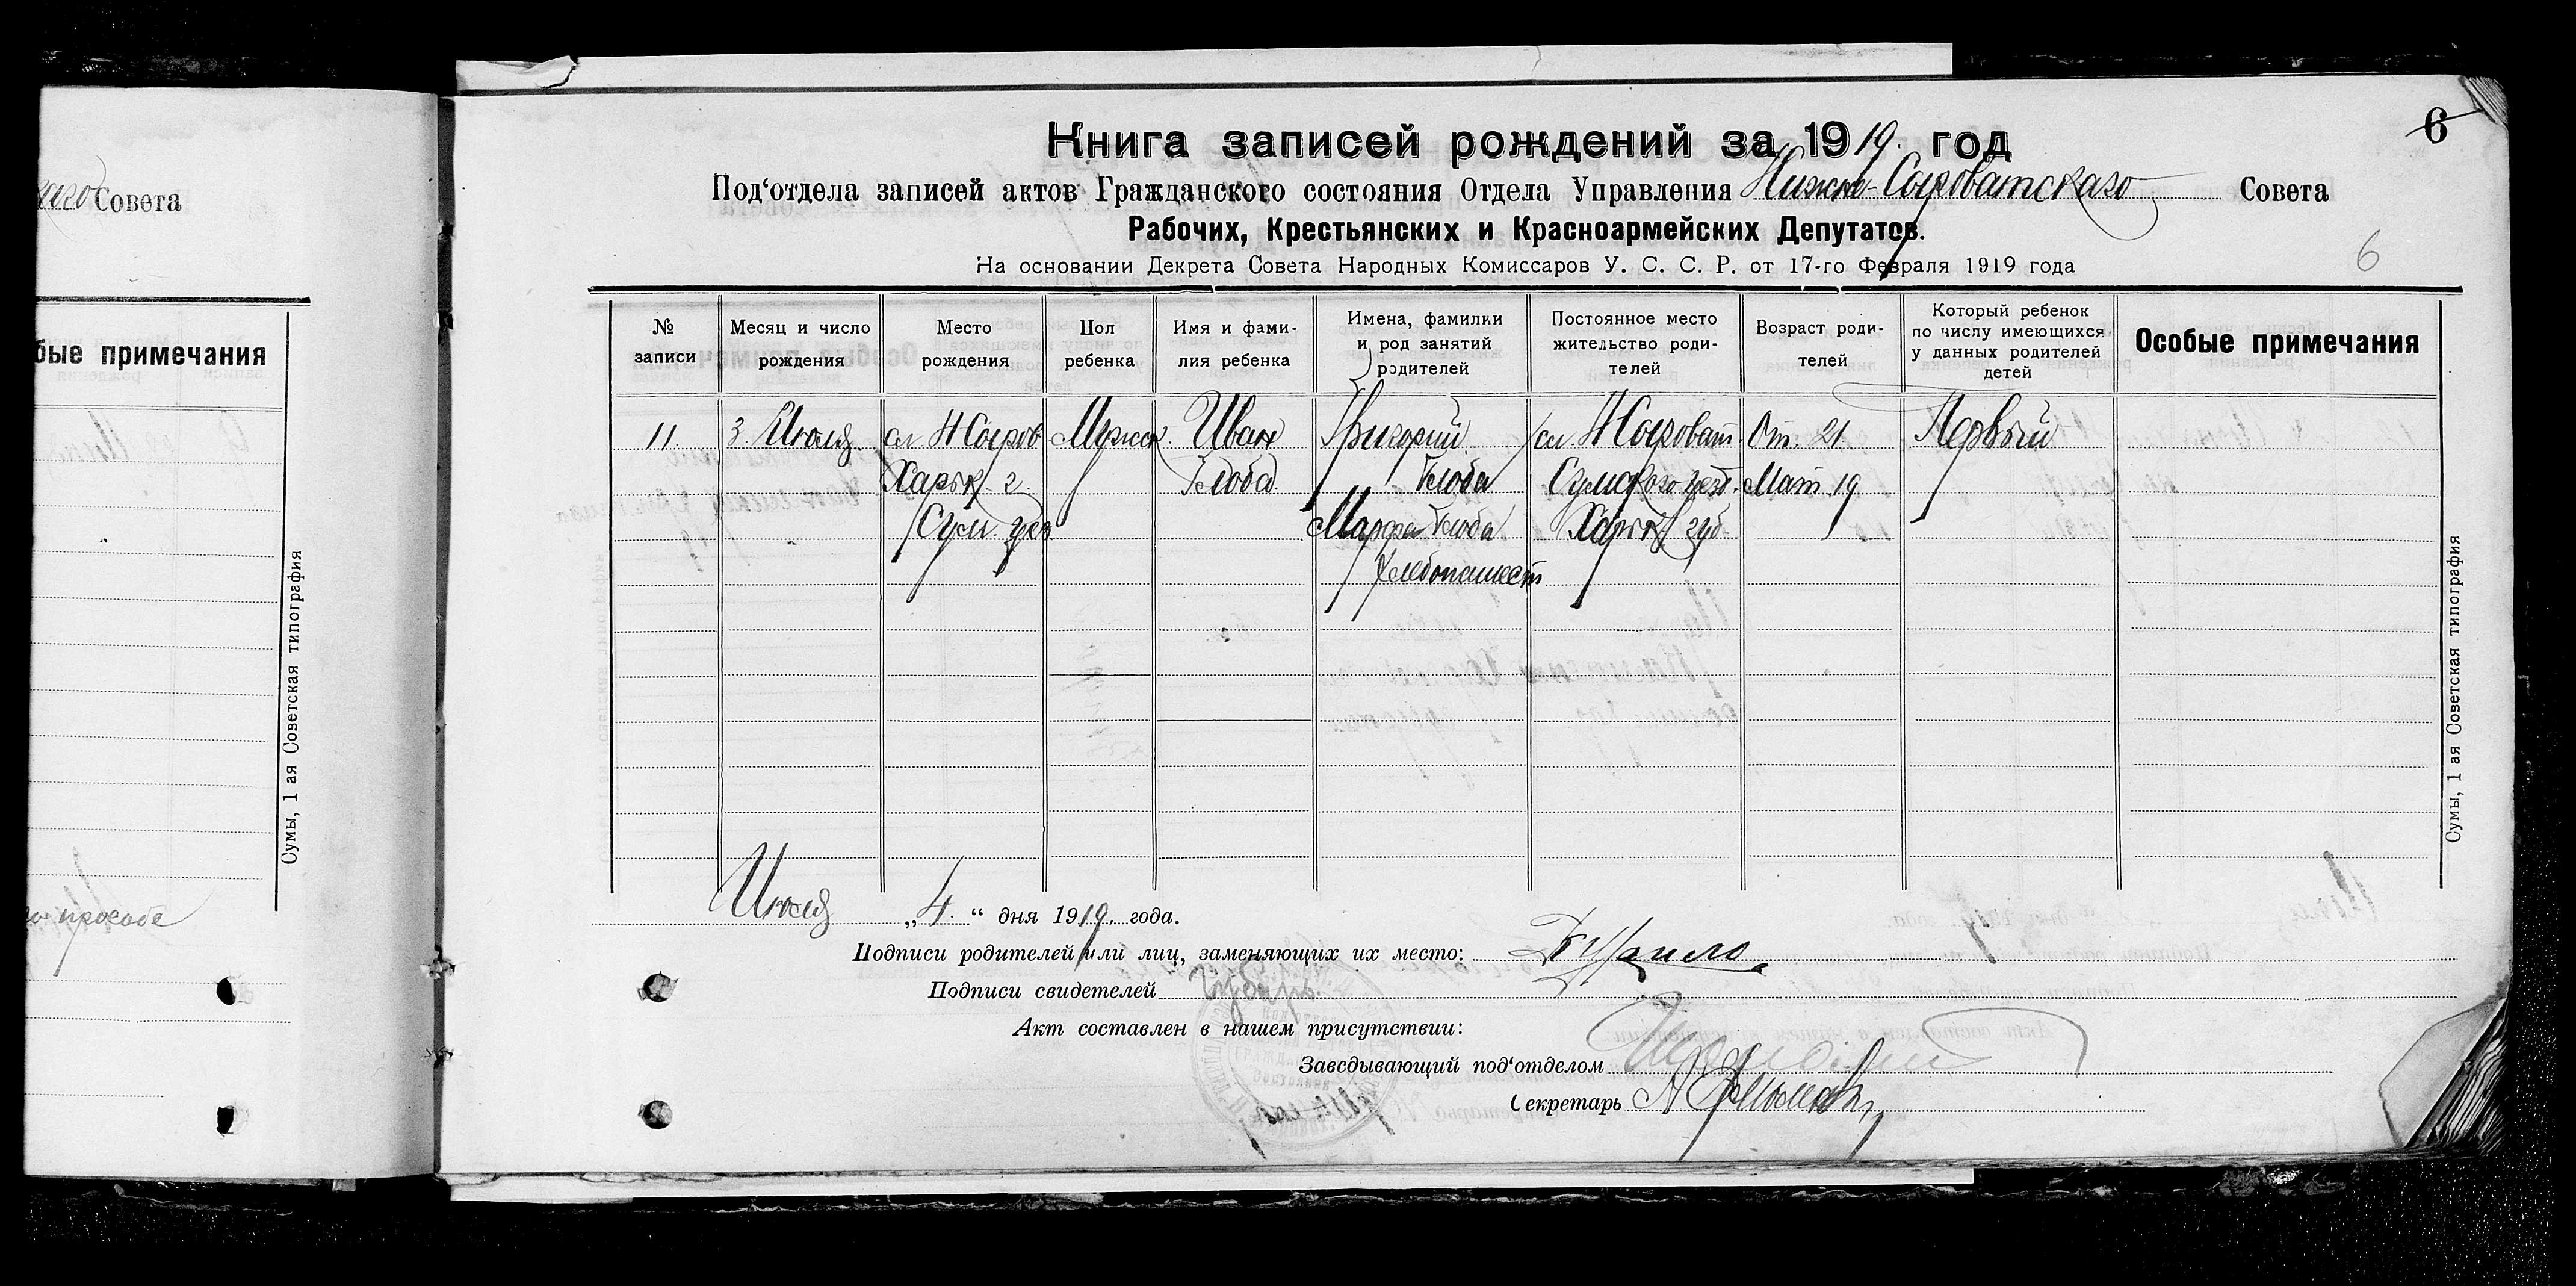 каго Совета
бые примечания
Сумы, 1 ая Советская типография
6
Книга записей рождений за 1919. год
Под'отдела записей актов Гражданского состояния Отдела Управления Нижне-Сыроватскаго Совета
Рабочих, Крестьянских и Красноармейских Депутатов.
На основании Декрета Совета Народных Комиссаров У. С. С. Р. от 17-го Февраля 1919 года
6
№ записи
Месяц и число рождения
Место рождения
Пол ребенка
Имя и фами-
лия ребенка
Имена, фамилии
и род занятий
родителей
Постоянное место
жительство роди-
телей
Возраст роди-
телей
Который ребенок
по числу имеющихся
у данных родителей
детей
Особые примечания
11.
3 Июля
сл. Н Сыров
Харьк. г.
Сум. уез
Мужск.
Иван
Белоба
Григорий
Белоба
Марфа Белоба
Хлебопашест
сл. Н Сыроват.
Сумского уезд.
Харьк губ
От. 21
Мат. 19
Первый
Июля „4." дня 1919. года.
Подписи родителей или лиц, заменяющих их место:
Подписи свидетелей
Акт составлен в нашем присутствии:
Заведывающий под'отделом
Секретарь
Сумы, 1 ая Советская типография